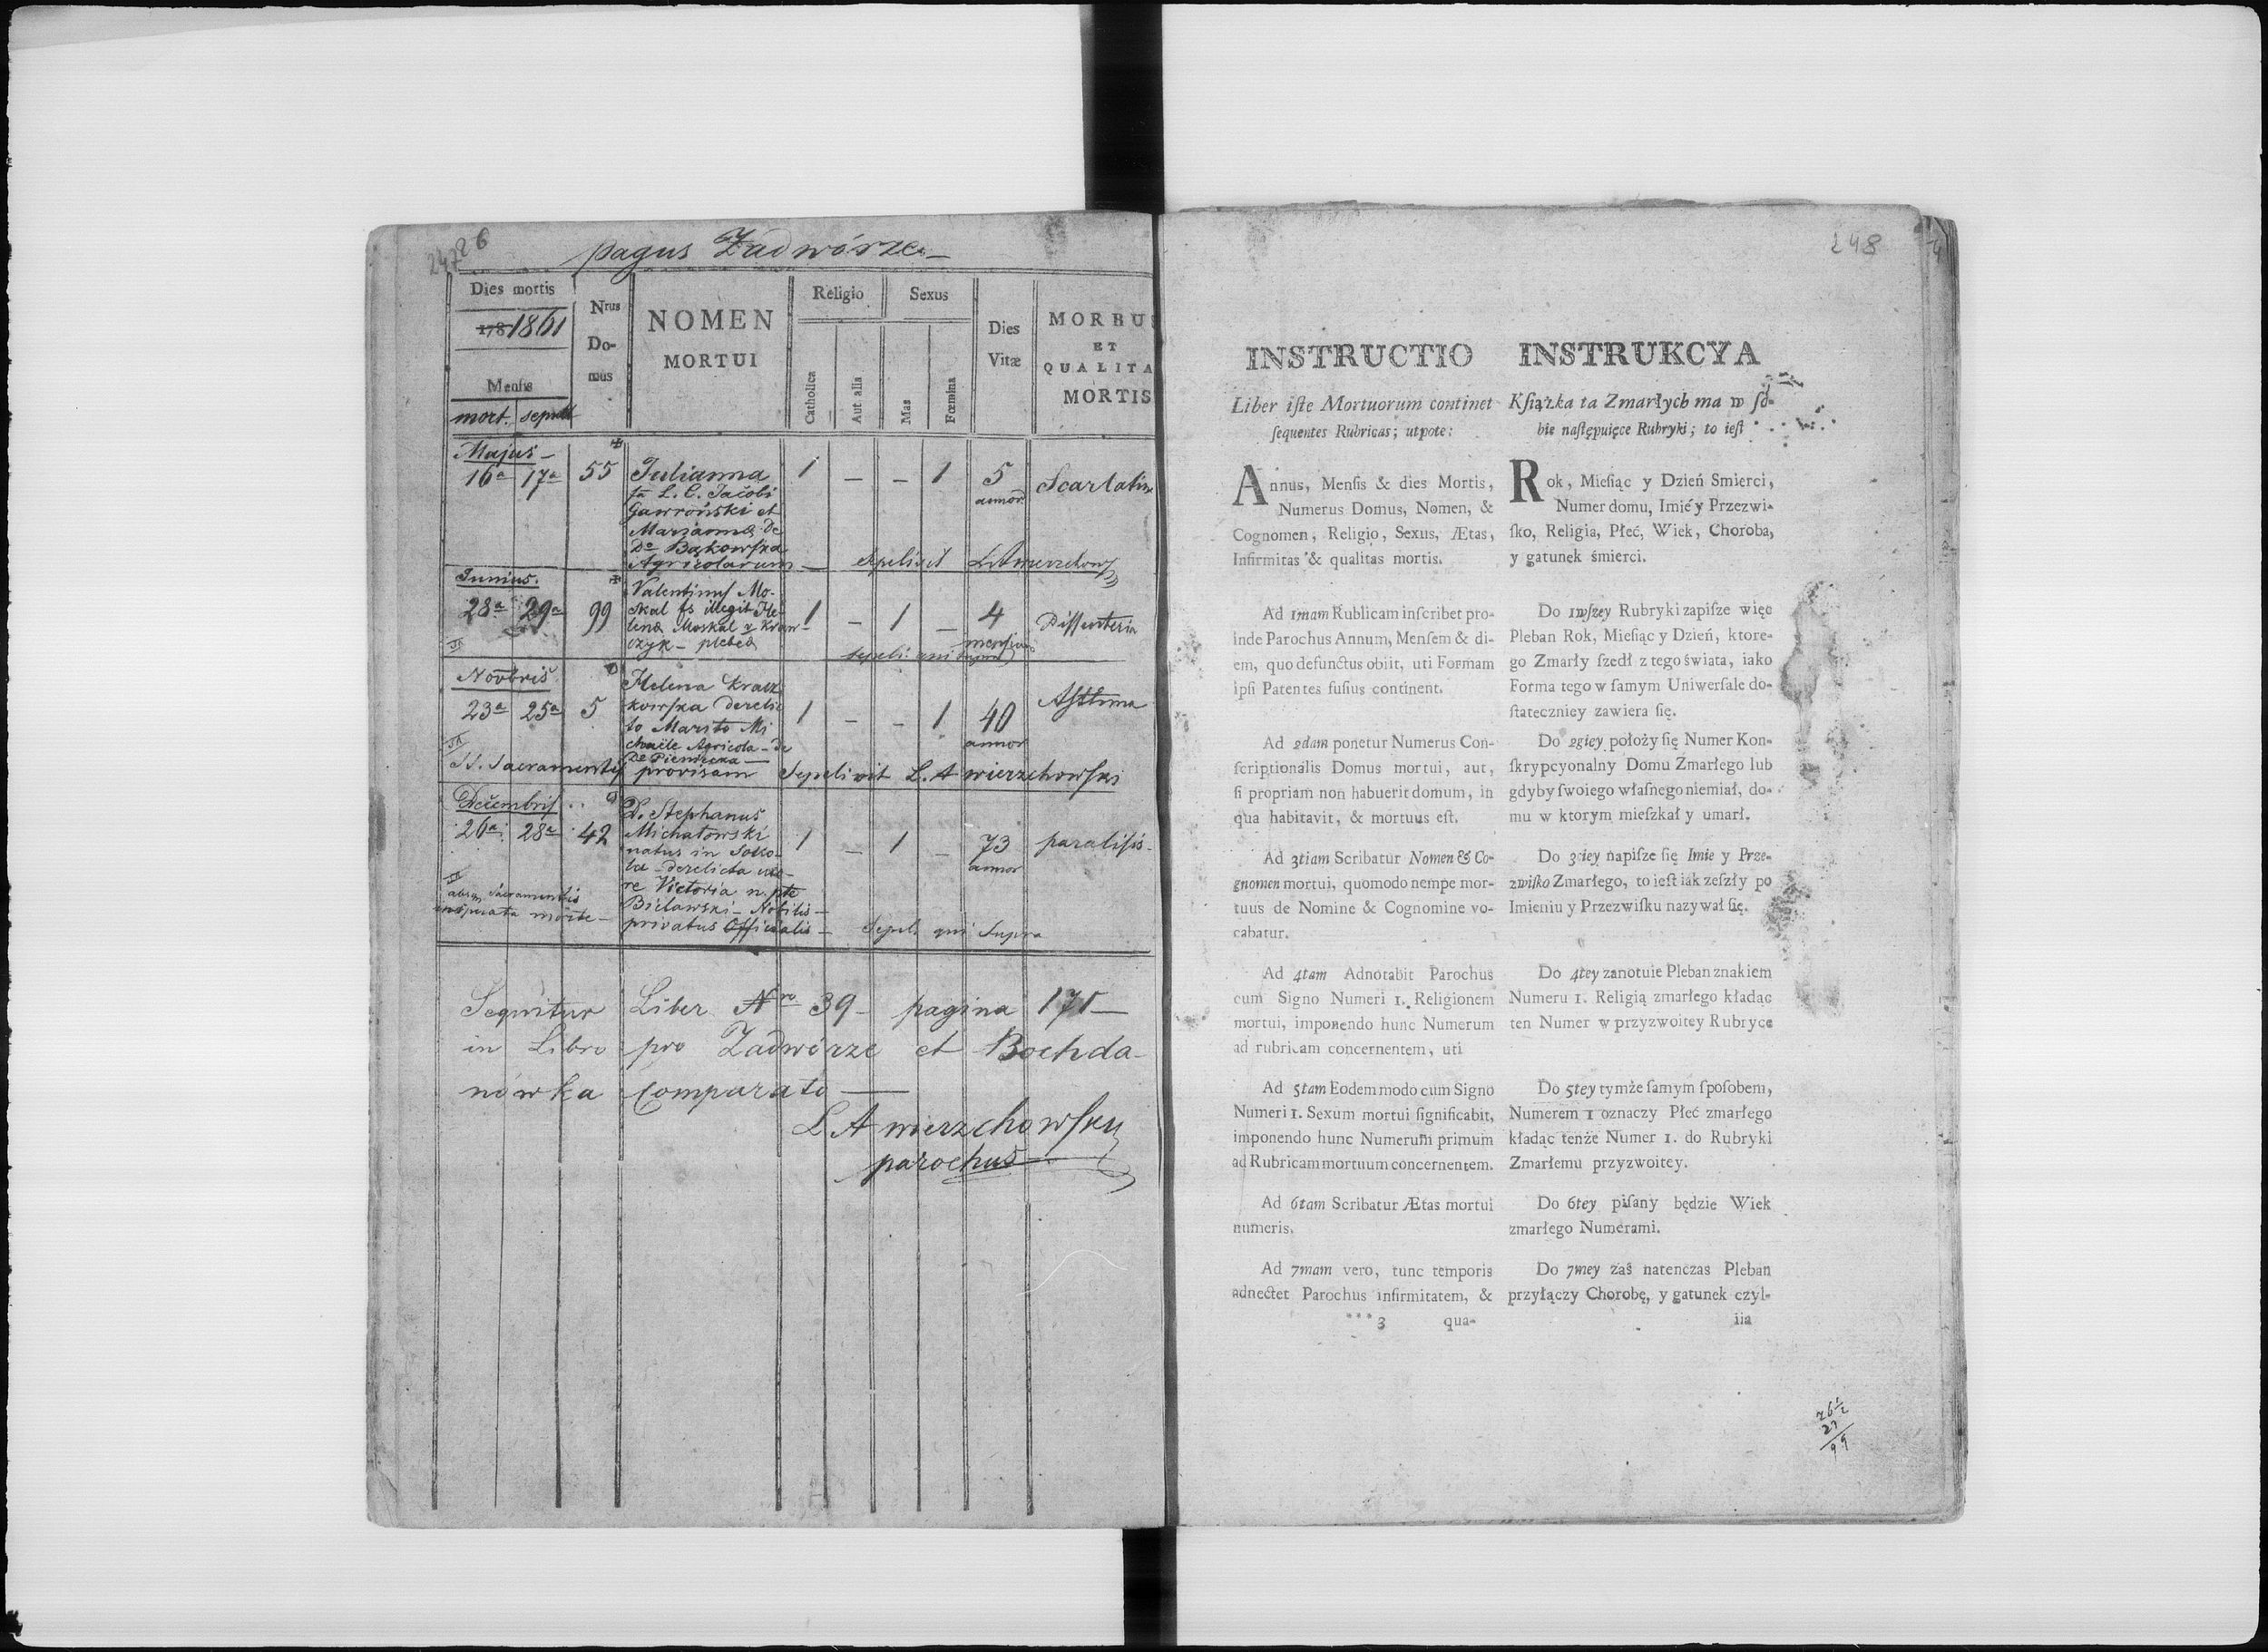 26
247
pagus Zadwórze
Dies mortis
178 1861
Mensis
mort. sepult
Nrus
Do-
mus
NOMEN
MORTUI
Religio
Catholica
Aut alia
Sexus
Mas
Fœmina
Dies
Vitæ
MORBUS
ET
QUALITA
MORTIS
Majus
16a 17a 55 Julianna 1 — — 1 5 annor Scarlatin
fa L. C. Jacobi
Gawroński et
Marianna De
Do Bąkowska
Agricolarum — Sepelivit LAwierzchows
Junius.
28a 29a 99 Valentinus Mo-
skal fs illegit He-
lena Moskal 1 — 1 — 4 mensium Dissenteria
czyk — plebea
sepeli: qui supra
Novbris
23a 25a 5 Helena Kracz
kowska derelic
to Marito Mi 1 — — 1 40 annor Asthma
chaele Agricola — de
Do Pieniecka —
SS. Sacramentis provisam Sepelivit L. A wierzchowski
Decembris
26a 28a 42 D. Stephanus
Michałowski 1 — 1 — 73 annor paralisis
natus in
derelicta uxo-
re Victoria
Bielawski — Nobilis —
absq. Sacramentis
insperata morte —
privatus Officialis — Sepel. qui Supra
Sequitur Liber Nro 39 — pagina 171 —
in Libro pro Zadwórze et Bochda-
nówka Comparato —
L A wierzchowski
parochus
248
INSTRUCTIO
Liber iſte Mortuorum continet
ſequentes Rubricas; utpote:
Annus, Menſis & dies Mortis,
Numerus Domus, Nomen, &
Cognomen, Religio, Sexus, Ætas,
Infirmitas & qualitas mortis.
Ad 1mam Rublicam inſcribet pro-
inde Parochus Annum, Menſem & di-
em, quo defunctus obiit, uti Formam
ipſi Patentes fuſius continent.
Ad 2dam ponetur Numerus Con-
ſcriptionalis Domus mortui, aut,
ſi propriam non habuerit domum, in
qua habitavit, & mortuus eſt.
Ad 3tiam Scribatur Nomen & Co-
gnomen mortui, quomodo nempe mor-
tuus de Nomine & Cognomine vo-
cabatur.
Ad 4tam Adnotabit Parochus
cum Signo Numeri 1. Religionem
mortui, imponendo hunc Numerum
ad rubricam concernentem, uti
Ad 5tam Eodem modo cum Signo
Numeri 1. Sexum mortui ſignificabit,
imponendo hunc Numerum primum
ad Rubricam mortuum concernentem.
Ad 6tam Scribatur Ætas mortui
numeris.
Ad 7mam vero, tunc temporis
adnectet Parochus infirmitatem, &
***3 qua-
INSTRUKCYA
Kſiążka ta Zmarłych ma w ſo-
bie naſtępuięce Rubryki; to ieſt
Rok, Mieſiąc y Dzień Smierci,
Numer domu, Imié y Przezwi-
ſko, Religia, Płeć, Wiek, Choroba,
y gatunek śmierci.
Do 1wſzey Rubryki zapiſze więc
Pleban Rok, Mieſiąc y Dzień, ktore-
go Zmarły ſzedł z tego świata, iako
Forma tego w ſamym Uniwerſale do-
ſtateczniey zawiera ſię.
Do 2giey położy ſię Numer Kon-
ſkrypcyonalny Domu Zmarłego lub
gdyby ſwoiego właſnego niemiał, do-
mu w ktorym mieſzkał y umarł.
Do 3ciey napiſze ſię Imie y Prze-
zwiſko Zmarłego, to ieſt iak zeſzły po
Imieniu y Przezwiſku nazywał ſię.
Do 4tey zanotuie Pleban znakiem
Numeru 1. Religią zmarłego kładąc
ten Numer w przyzwoitey Rubryce
Do 5tey tymże ſamym ſpoſobem,
Numerem 1 oznaczy Płeć zmarłego
kładąc tenże Numer 1. do Rubryki
Zmarłemu przyzwoitey.
Do 6tey piſany będzie Wiek
zmarłego Numerami.
Do 7mey zaś natenczas Pleban
przyłączy Chorobę, y gatunek czyl-
iia
26½
27
99